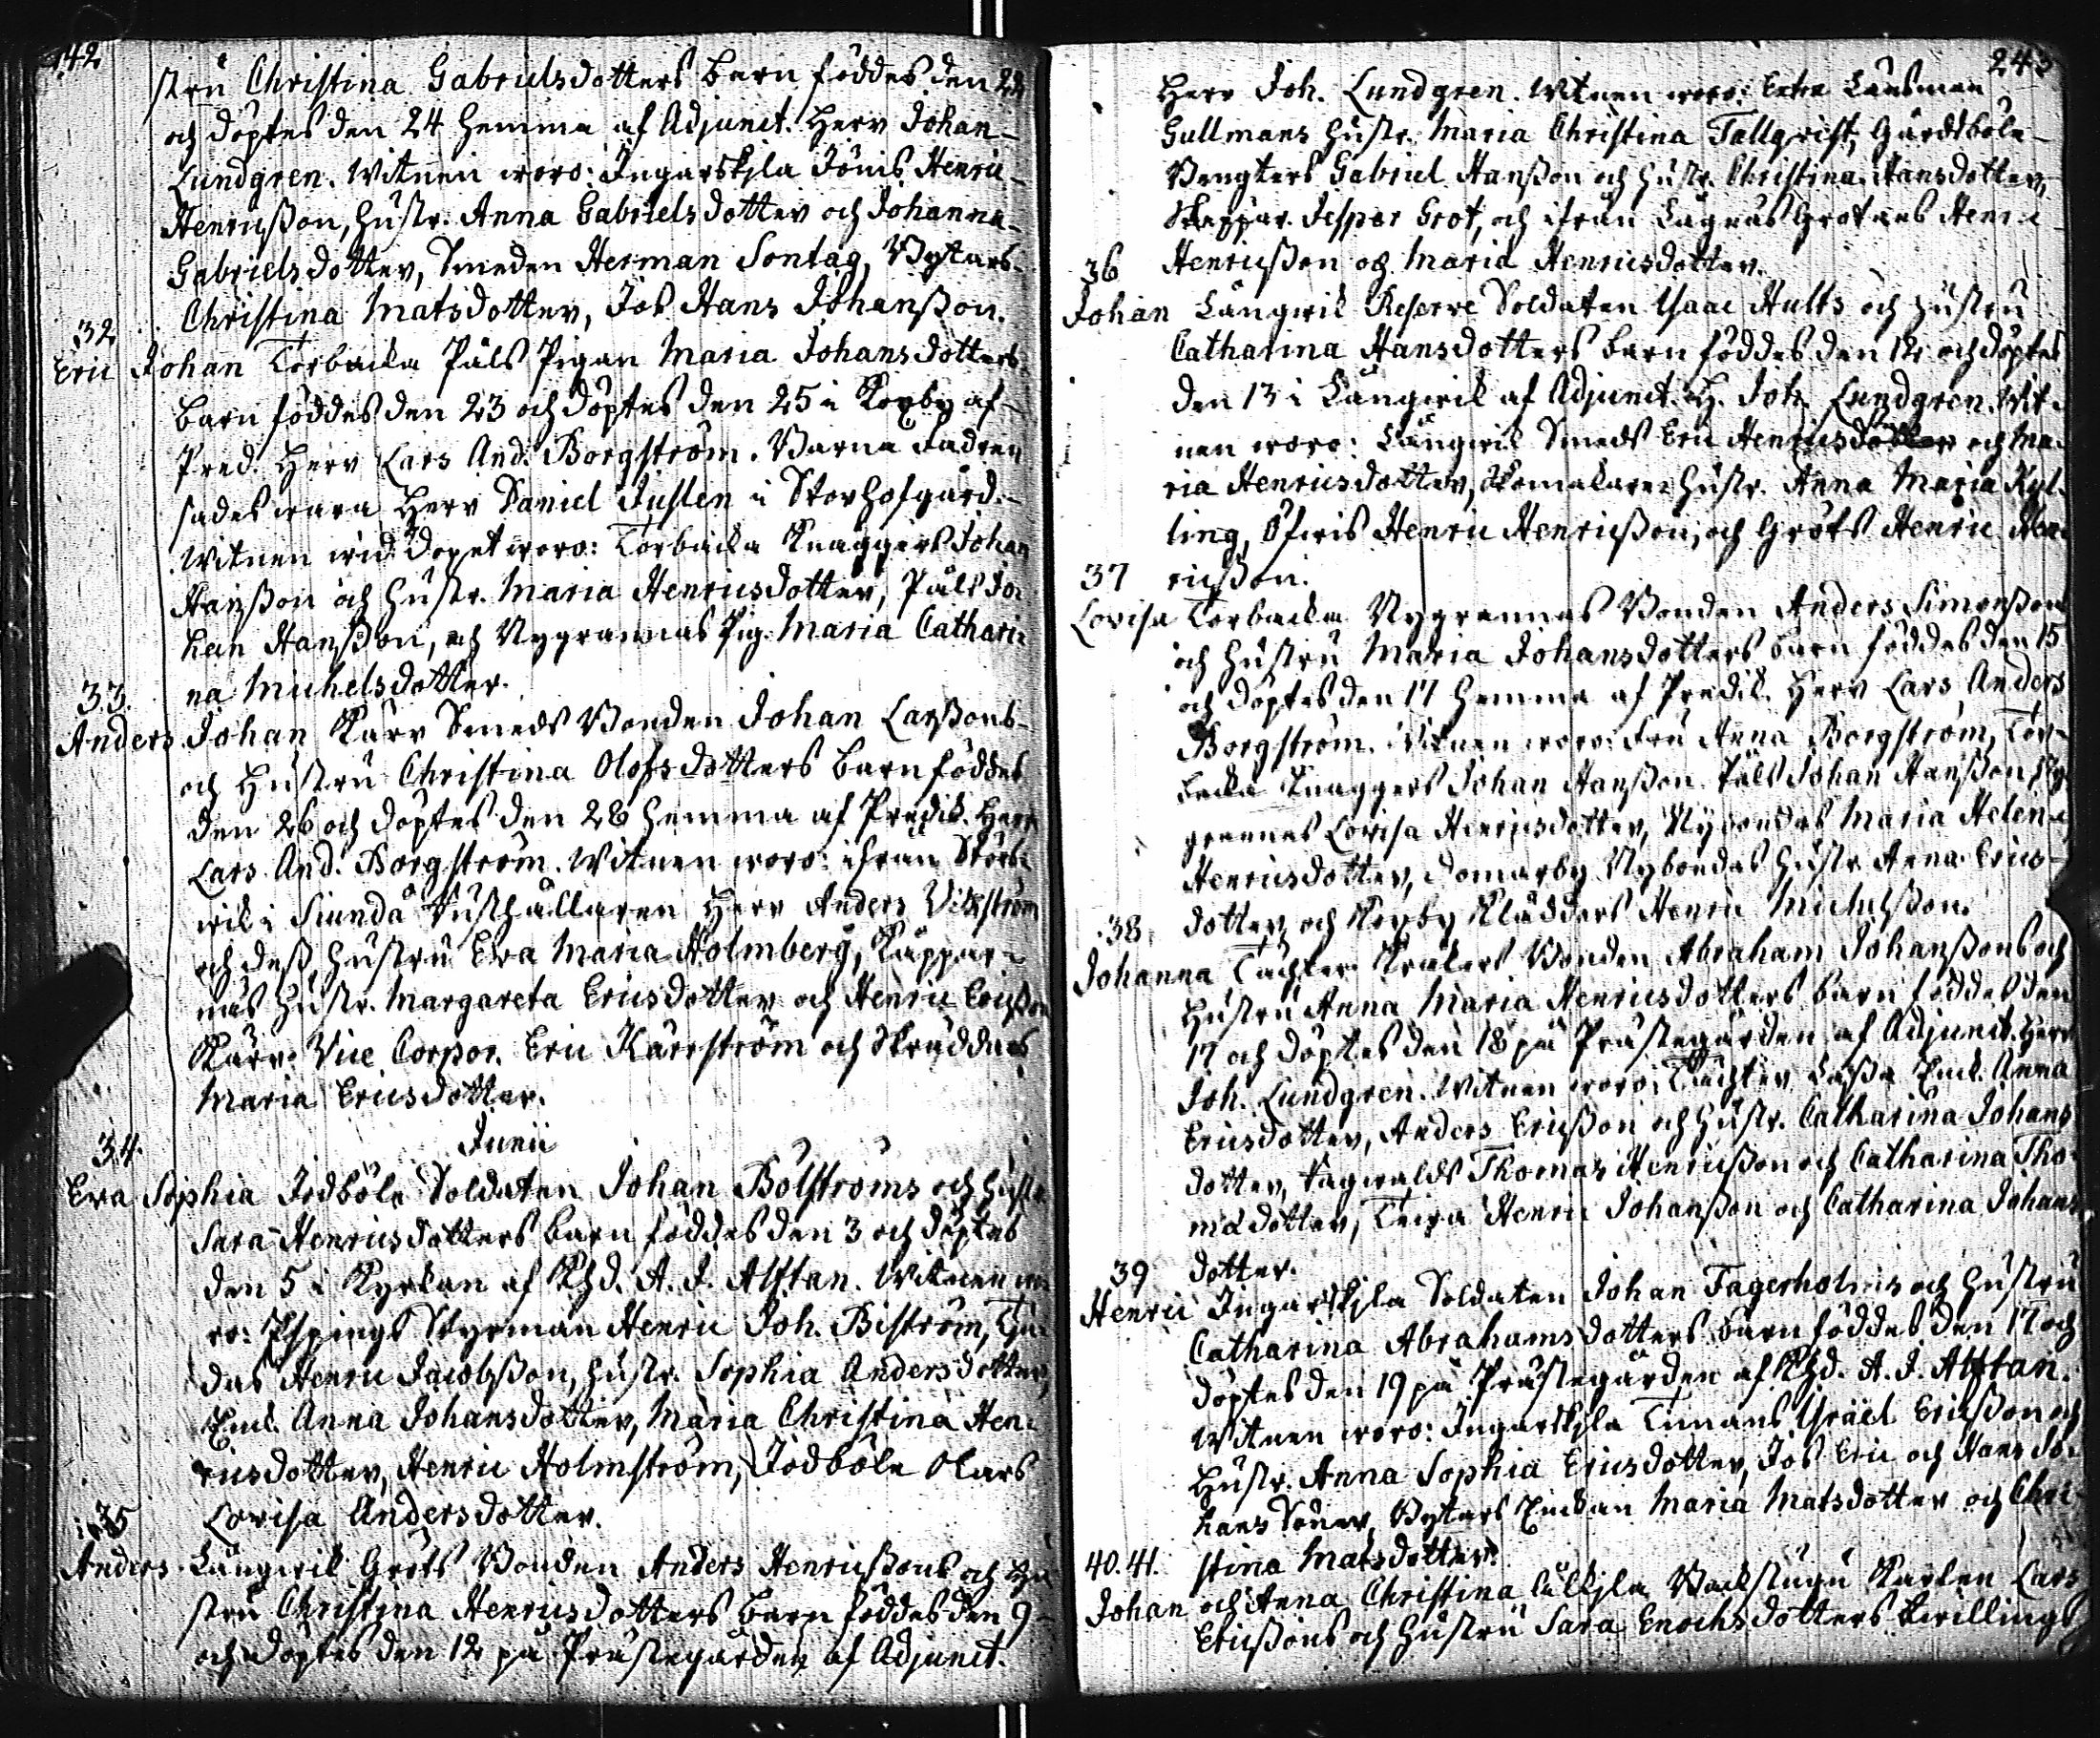 242
stru Christina Gabrielsdotters barn föddes den 22
och döptes den 24 hemma af Adjunct. Herr Johan
Lundgren. Witnen woro: Ingarskila Jönis Henric
Henricsson, hustr. Anna Gabrielsdotter och Johanna
Gabrielsdotter, Smeden Herman Sontag, Bystars
Christina Matsdotter, Jos Hans Johansson.
32
Eric Johan Torbacka Påls Pigan Maria Johansdotters
barn föddes den 23 och döptes den 25 i Koxby af
Pred. Herr Lars And. Borgström. Barna Fadren
sades wara Herr Daniel Juslen i Storhofgård.
Witnen wid Dopet woro: Torbacka Knaggers Johan
Hansson och hustr. Maria Henricsdotter, Påls Jo-
han Hansson, och Nygrannas Pig. Maria Cathari-
na Michelsdotter.
33.
Anders Johan Kärr Smeds Bonden Johan Larssons
och Hustru Christina Olofsdotters barn föddes
den 26 och döptes den 28 hemma af Predik. Herr
Lars And. Borgström. Witnen woro: ifrån Störs-
wik i Siundå Rusthållaren Herr Anders Wikström
och dess hustru Eva Maria Holmberg, Käppar-
nas hustr. Margareta Ericsdotter och Henric Ericsson
Kärr. Vice Corpor. Eric Kärrström och Skräddars
Maria Ericsdotter.
Junii
34.
Eva Sophia Jodböle Soldaten Johan Bölströms och hustr.
Sara Henricsdotters barn föddes den 3 och döptes
den 5 i Kyrkan af Khd. A. J. Alftan. Witnen wo-
ro: Ispings Styrman Henric Joh. Biström,
das Henric Jacobsson, hustr. Sophia Andersdotter,
Enk. Anna Johansdotter, Maria Christina Hen-
ricsdotter, Henric Holmström, Jodböle Clars
Lovisa Andersdotter.
35
Anders Långwik Gröts Bonden Anders Henricssons och hu-
stru Christina Henricsdotters barn föddes den 9
och döptes den 12 på Prästegården af Adjunct.
243
Herr Joh. Lundgren. Witnen woro: Extra Länsman
Gullmans hustr. Maria Christina Tallqvist, Gårdsböle
Bengters Gabriel Hansson och hustr. Christina Hansdotter,
Skeppar. Jesper Grot, och ifrån Lågnäs Grotnes Henric
Henricsson och Maria Henricsdotter.
36
Johan Långwik Reserve Soldaten Isaac Hults och hustru
Catharina Hansdotters barn föddes den 12 och döptes
den 13 i Långwik af Adjunct. H. Joh. Lundgren. Wit-
nen woro: Långwik Smeds Eric Henricsdotter och Ma-
ria Henricsdotter, Skomakare hustr. Anna Maria Kyl-
ling, Öfwis Henric Henricsson, och Gröts Henric Hen-
ricsson.
37
Lovisa Torbacka Nygrannas Bonden Anders Simonssons
och hustru Maria Johansdotters barn föddes den 15
och döptes den 17 hemma af Predik. Herr Lars Anders
Borgström. Witnen woro: Fru Anna Borgström, Tor-
backa Knaggers Johan Hansson, Påls Johan Hansson, Ny-
grannas Lovisa Henricsdotter, Nybondas Maria Helena
Henricsdotter, Domarby Nybondas hustr. Anna Erics-
dotter, och Koxby Klädders Henric Michelsson.
38.
Johanna Täckter Krakers Bonden Abraham Johanssons och
hustru Anna Maria Henricsdotters barn föddes den
17 och döptes den 18 på Prästegården af Adjunct. Herr
Joh. Lundgren. Witnen woro: Täckter Lassa Enk. Anna
Ericsdotter, Anders Ericsson och hustr. Catharina Johans
dotter, Sagwalds Thomas Henricsson och Catharina Tho-
mædotter, Henric Johansson och Catharina Johans
dotter.
39
Henric Ingarskila Soldaten Johan Fagerholms och hustru
Catharina Abrahamsdotters barn föddes den 17 och
döptes den 19 på Prästegården af Khd. A. J. Alftan.
Witnen woro: Ingarskila Timans Israel Ericsson och
hustr. Anna Sophia Ericsdotter, Jos Eric och Hans Jo-
hans Söner, Bystars Enkan Maria Matsdotter och Chri-
stina Matsdotter.
40. 41.
Johan och Anna Christina Backstugu Karlen Lars
Ericssons och hustru Sara Enochsdotters twillings